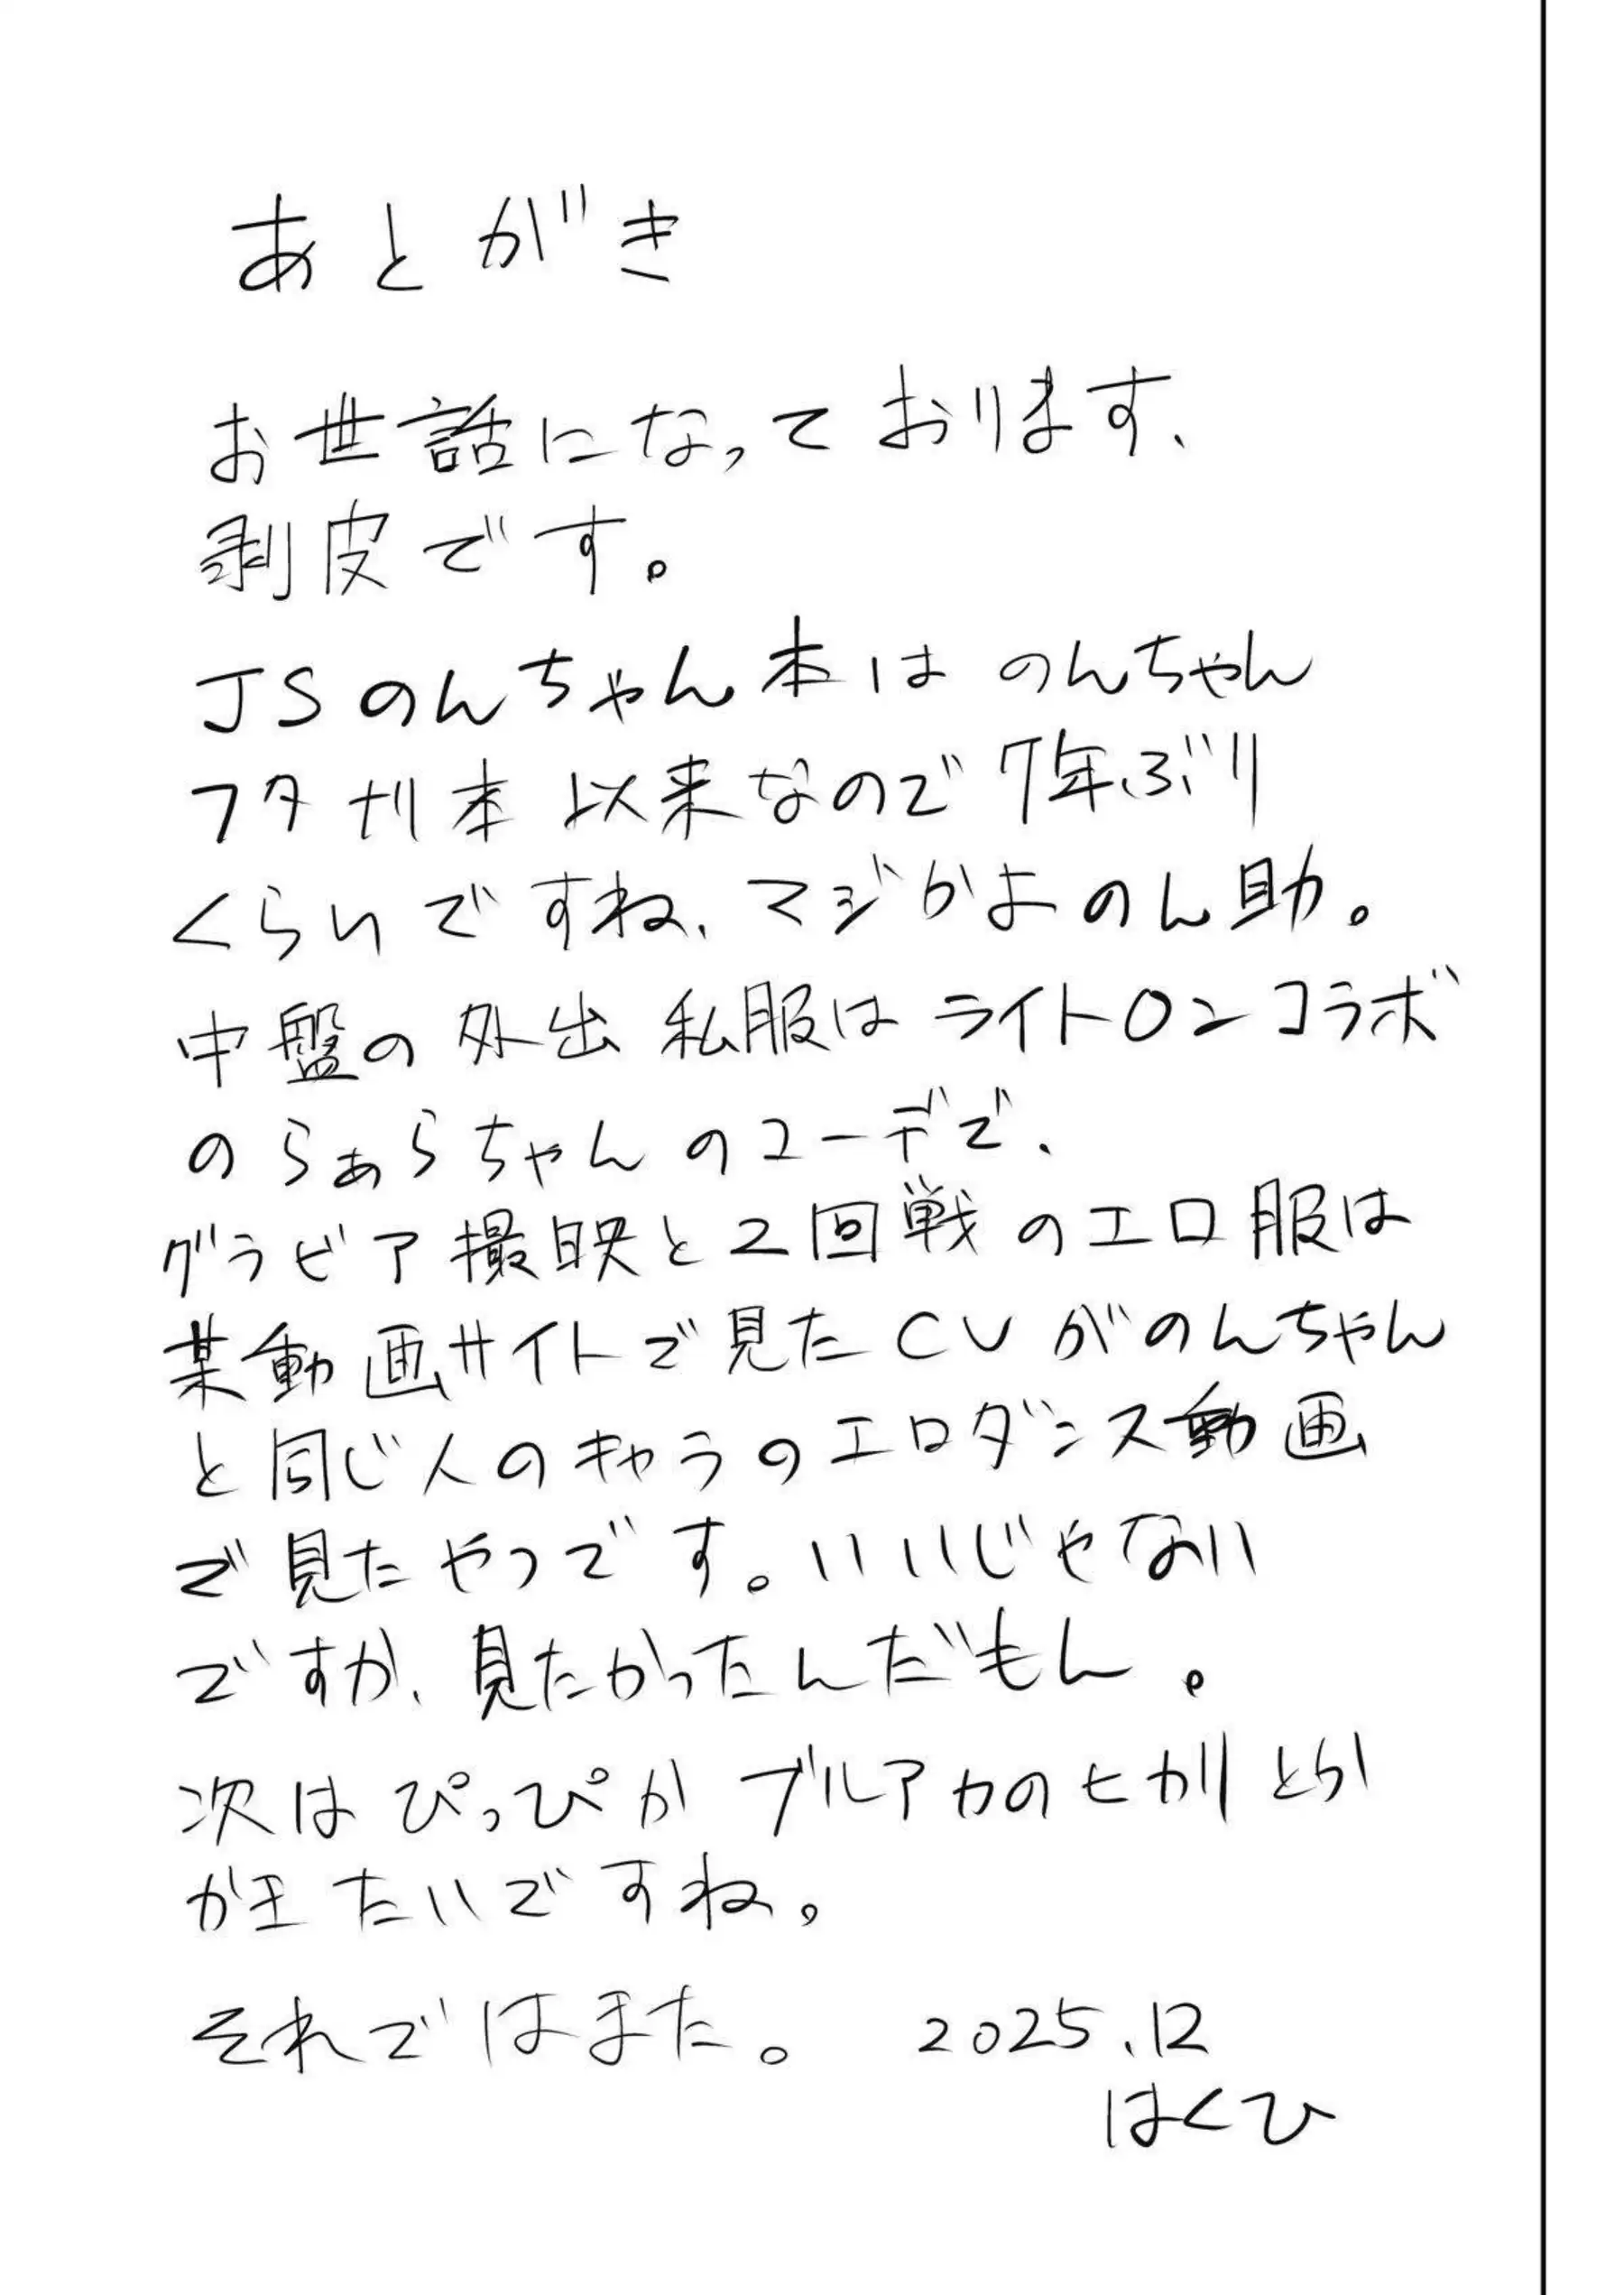 あとがき
お世話になっております、
剥皮です。
JSのんちゃん本はのんちゃん
フタ刊本以来なので7年ぶり
くらいですね、マジかよのん助。
中盤の外出私服はライトオンコラボ
のらぁらちゃんのコーデで、
グラビア撮映と2回戦のエロ服は
某動画サイトで見たCVがのんちゃん
と同じ人のキャラのエロダンス動画
で見たやつです。いいじゃない
ですか、見たかったんだもん。
次はぴっぴかブルアカのヒカリとか
かきたいですね。
それではまた。 2025.12
はくひ